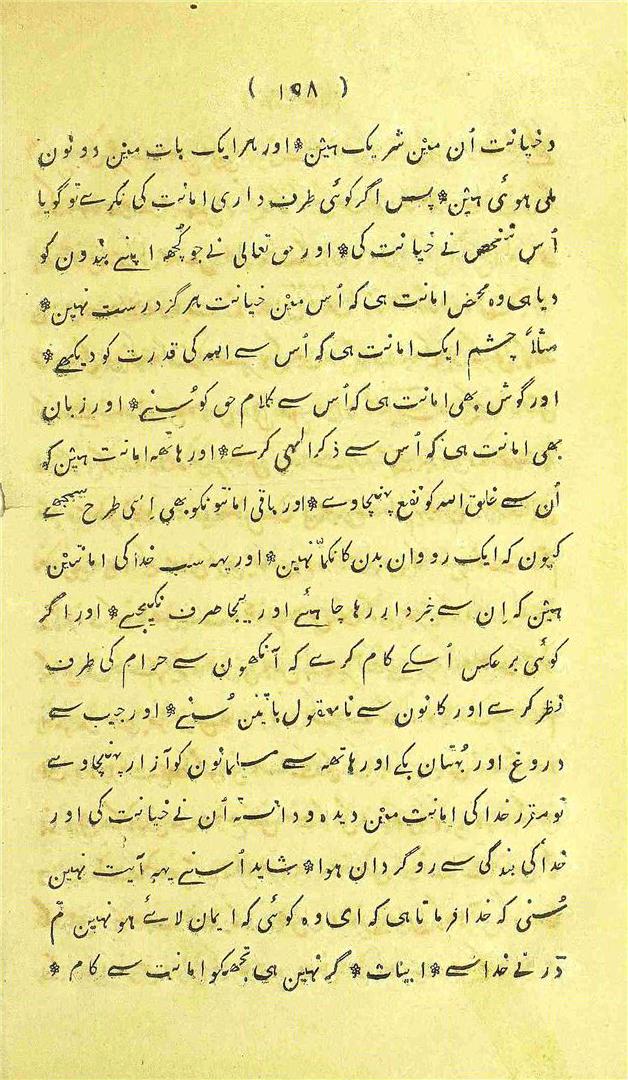 ( ۱۰۸ )
و خیانت اُن میْن شریک ہیْن * اور ہر ایک بات میْن دونون
ملی ہوئی ہیْن * پس اگر کوئی طرف داری امانت کی نکرے تو گویا
اُس شخص نے خیانت کی * اور حق تعالی نے جو کُچھ اپنے بندون کو
دیا ہی وہ محض امانت ہی کہ اُس میْن خیانت ہرگز درست نہین *
مثلاً چشم ایک امانت ہی کہ اُس سے اللہ کی قدرت کو دیکھے *
اور گوش بھی امانت ہی کہ اُس سے کلام حق کو سُنے * اور زبان
بھی امانت ہی کہ اُس سے ذکر الٰہی کرے * اور ہاتھ امانت ہیْن کہ
اُن سے خلق اللہ کو نفع پہنچاوے * اور باقی امانتونکو بھی اِسی طرح سمجھے
کیون کہ ایک روواں بدن کا نکمّا نہین * اور یہہ سب خدا کی امانتیْن
ہیْن کہ اِن سے خبردار رہا چاہئے اور بیجا صرف نکیجئے * اور اگر
کوئی برعکس اُسکے کام کرے کہ آنکھون سے حرام کی طرف
نظر کرے اور کانون سے نامعقول باتیْن سُنے * اور جیب سے
دروغ اور بُہتان بکے اور ہاتھ سے مسلمانون کو آزار پہنچاوے
تو مقرر خدا کی امانت میْن دیدہ و دانستہ اُن نے خیانت کی اور
خدا کی بندگی سے روگردان ہوا * شاید اُسنے یہہ آیت نہین
سُنی کہ خدا فرماتا ہی کہ ای وہ کوئی کہ ایمان لائے ہو نہین تم
ڈرتے خدا سے * ابیات * گر نہین ہی تجھ کو امانت سے کام *